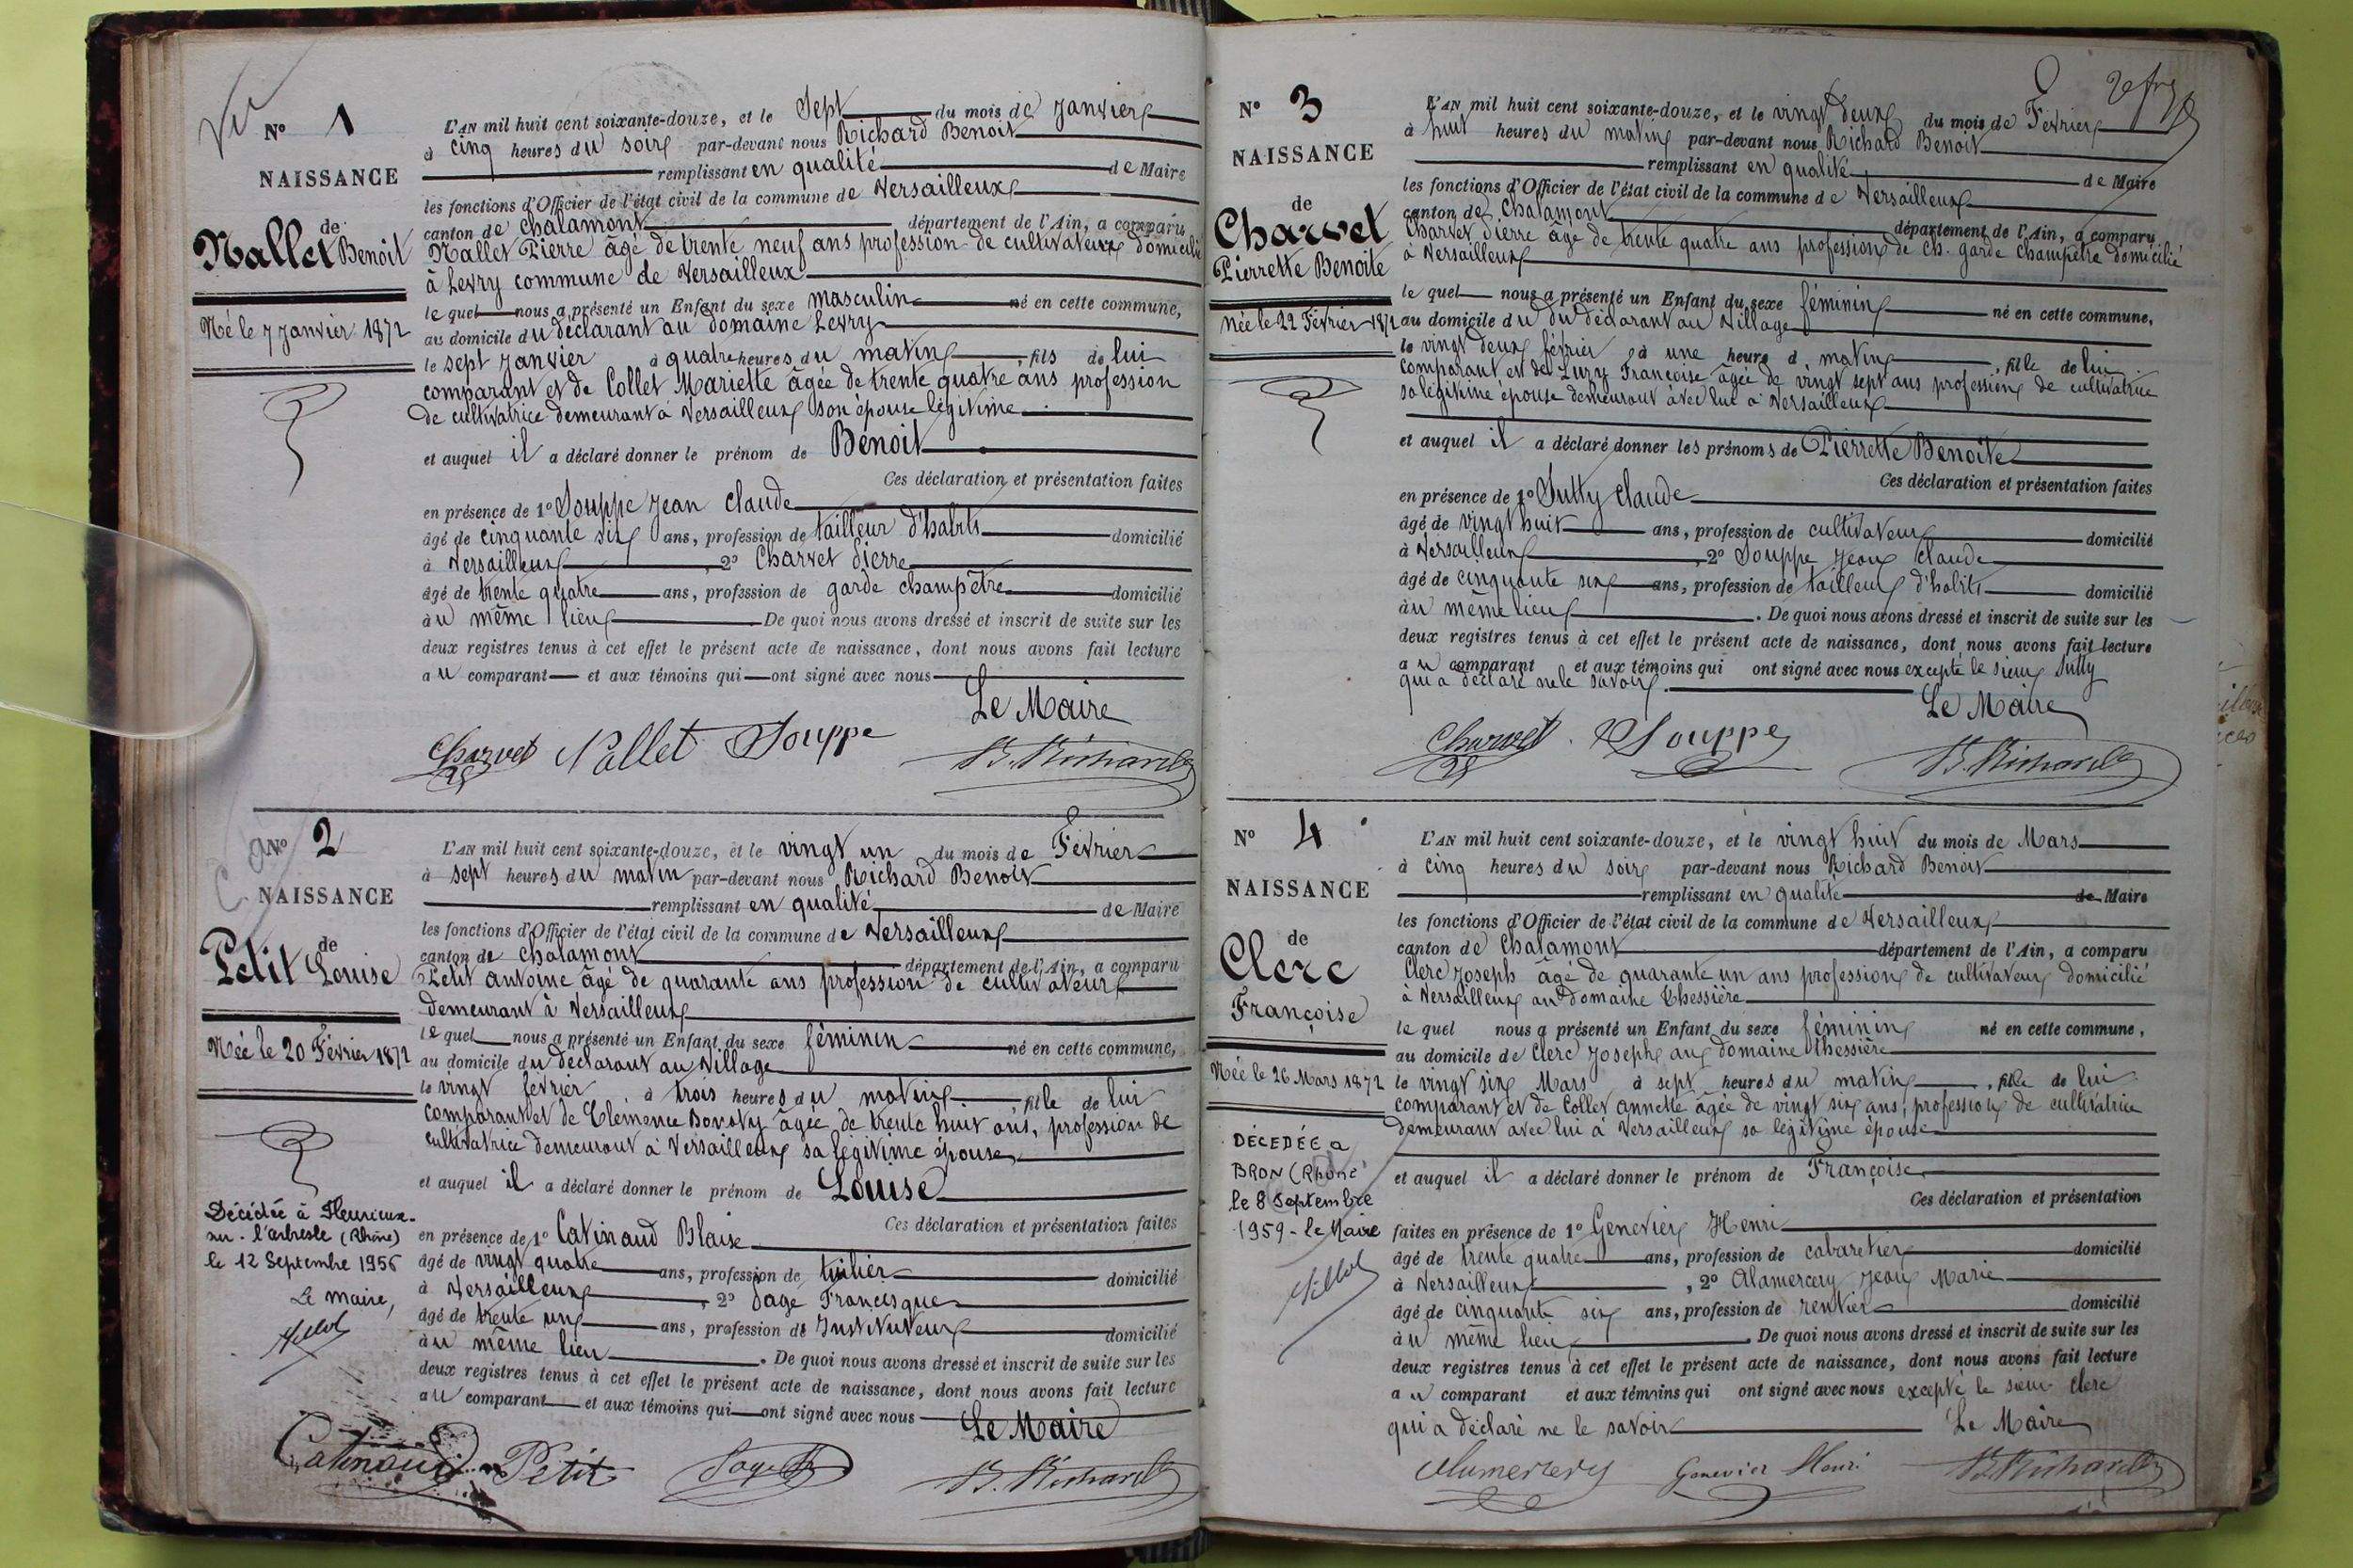 Vu
N° 1
NAISSANCE
de
Nallet Benoit
Né le 7 Janvier 1872
L'AN mil huit cent soixante-douze, et le Sept du mois de Janvier
à cinq heures du soir par-devant nous Richard Benoit
remplissant en qualité de Maire
les fonctions d'Officier de l'état civil de la commune de Versailleux
canton de Chalamont département de l'Ain, a comparu
Nallet Pierre âgé de trente neuf ans profession de cultivateur domicilié
à Levry commune de Versailleux
le quel nous a présenté un Enfant du sexe masculin né en cette commune,
au domicile du déclarant au domaine Levry
le sept Janvier à quatre heures du matin, fils de lui
comparant et de Collet Mariette âgée de trente quatre ans profession
de cultivatrice demeurant à Versailleux son épouse légitime
et auquel il a déclaré donner le prénom de Benoit
Ces déclaration et présentation faites
en présence de 1° Souppe Jean Claude
âgé de cinquante six ans, profession de tailleur d'habits domicilié
à Versailleux, 2° Charvet Pierre
âgé de trente quatre ans, profession de garde champêtre domicilié
au même lieu. De quoi nous avons dressé et inscrit de suite sur les
deux registres tenus à cet effet le présent acte de naissance, dont nous avons fait lecture
au comparant et aux témoins qui ont signé avec nous
Le Maire
Charvet Nallet Souppe B. Richard
N° 2
NAISSANCE
de
Petit Louise
Née le 20 Février 1872
Décédée à Fleurieux-
sur-l'arbresle (Rhône)
le 12 Septembre 1956
Le maire,
L'AN mil huit cent soixante-douze, et le vingt un du mois de Février
à sept heures du matin par-devant nous Richard Benoit
remplissant en qualité de Maire
les fonctions d'Officier de l'état civil de la commune de Versailleux
canton de Chalamont département de l'Ain, a comparu
Petit Antoine âgé de quarante ans profession de cultivateur
demeurant à Versailleux
le quel nous a présenté un Enfant du sexe féminin né en cette commune,
au domicile du déclarant au Village
le vingt février à trois heures du matin fille de lui
comparant et de Clémence âgée de trente huit ans, profession de
cultivatrice demeurant à Versailleux sa légitime épouse
et auquel il a déclaré donner le prénom de Louise
Ces déclaration et présentation faites
en présence de 1° Catinaud Blaise
âgé de vingt quatre ans, profession de tuilier domicilié
à Versailleux, 2° Sage Francisque
âgé de trente un ans, profession de Instituteur domicilié
au même lieu. De quoi nous avons dressé et inscrit de suite sur les
deux registres tenus à cet effet le présent acte de naissance, dont nous avons fait lecture
au comparant et aux témoins qui ont signé avec nous
Le Maire
Catinaud Petit Sage B. Richard
2
N° 3
NAISSANCE
de
Charvet
Pierrette Benoite
Née le 22 Février 1872
L'AN mil huit cent soixante-douze, et le vingt deux du mois de Février
à huit heures du matin par-devant nous Richard Benoit
remplissant en qualité de Maire
les fonctions d'Officier de l'état civil de la commune de Versailleux
canton de Chalamont département de l'Ain, a comparu
Charvet Pierre âgé de trente quatre ans profession de ch. garde champêtre domicilié
à Versailleux
le quel nous a présenté un Enfant du sexe féminin né en cette commune,
au domicile du du déclarant au Village
le vingt deux février, à une heure d matin, fille de lui
comparant et de Luzy Françoise âgée de vingt sept ans profession de cultivatrice
sa légitime épouse demeurant avec lui à Versailleux
et auquel il a déclaré donner les prénoms de Pierrette Benoite
Ces déclaration et présentation faites
en présence de 1° Sutty Claude
âgé de vingt huit ans, profession de cultivateur domicilié
à Versailleux, 2° Souppe Jean Claude
âgé de cinquante six ans, profession de tailleur d'habits domicilié
au même lieu. De quoi nous avons dressé et inscrit de suite sur les
deux registres tenus à cet effet le présent acte de naissance, dont nous avons fait lecture
au comparant et aux témoins qui ont signé avec nous excepté le sieur Sutty
qui a déclaré ne le savoir.
Le Maire
Charvet Souppe B. Richard
N° 4
NAISSANCE
de
Clerc
Françoise
Née le 26 Mars 1872
DÉCÉDÉE a
BRON (Rhône)
le 8 Septembre
1959 - le Maire
L'AN mil huit cent soixante-douze, et le vingt huit du mois de Mars
à cinq heures du soir par-devant nous Richard Benoit
remplissant en qualité de Maire
les fonctions d'Officier de l'état civil de la commune de Versailleux
canton de Chalamont département de l'Ain, a comparu
Clerc Joseph âgé de quarante un ans profession de cultivateur domicilié
à Versailleux au Domaine Thessière
le quel nous a présenté un Enfant du sexe féminin né en cette commune,
au domicile de Clerc Joseph au domaine Thessière
le vingt six Mars, à sept heures du matin, fille de lui
comparant et de Collet Annette âgée de vingt six ans, profession de cultivatrice
demeurant avec lui à Versailleux sa légitime épouse
et auquel il a déclaré donner le prénom de Françoise
Ces déclaration et présentation
faites en présence de 1° Genevier Henri
âgé de trente quatre ans, profession de cabaretier domicilié
à Versailleux, 2° Alamercery Jean Marie
âgé de cinquante six ans, profession de rentier domicilié
au même lieu. De quoi nous avons dressé et inscrit de suite sur les
deux registres tenus à cet effet le présent acte de naissance, dont nous avons fait lecture
au comparant et aux témoins qui ont signé avec nous excepté le sieur Clerc
qui a déclaré ne le savoir
Le Maire
Alamercery Genevier Henri B. Richard